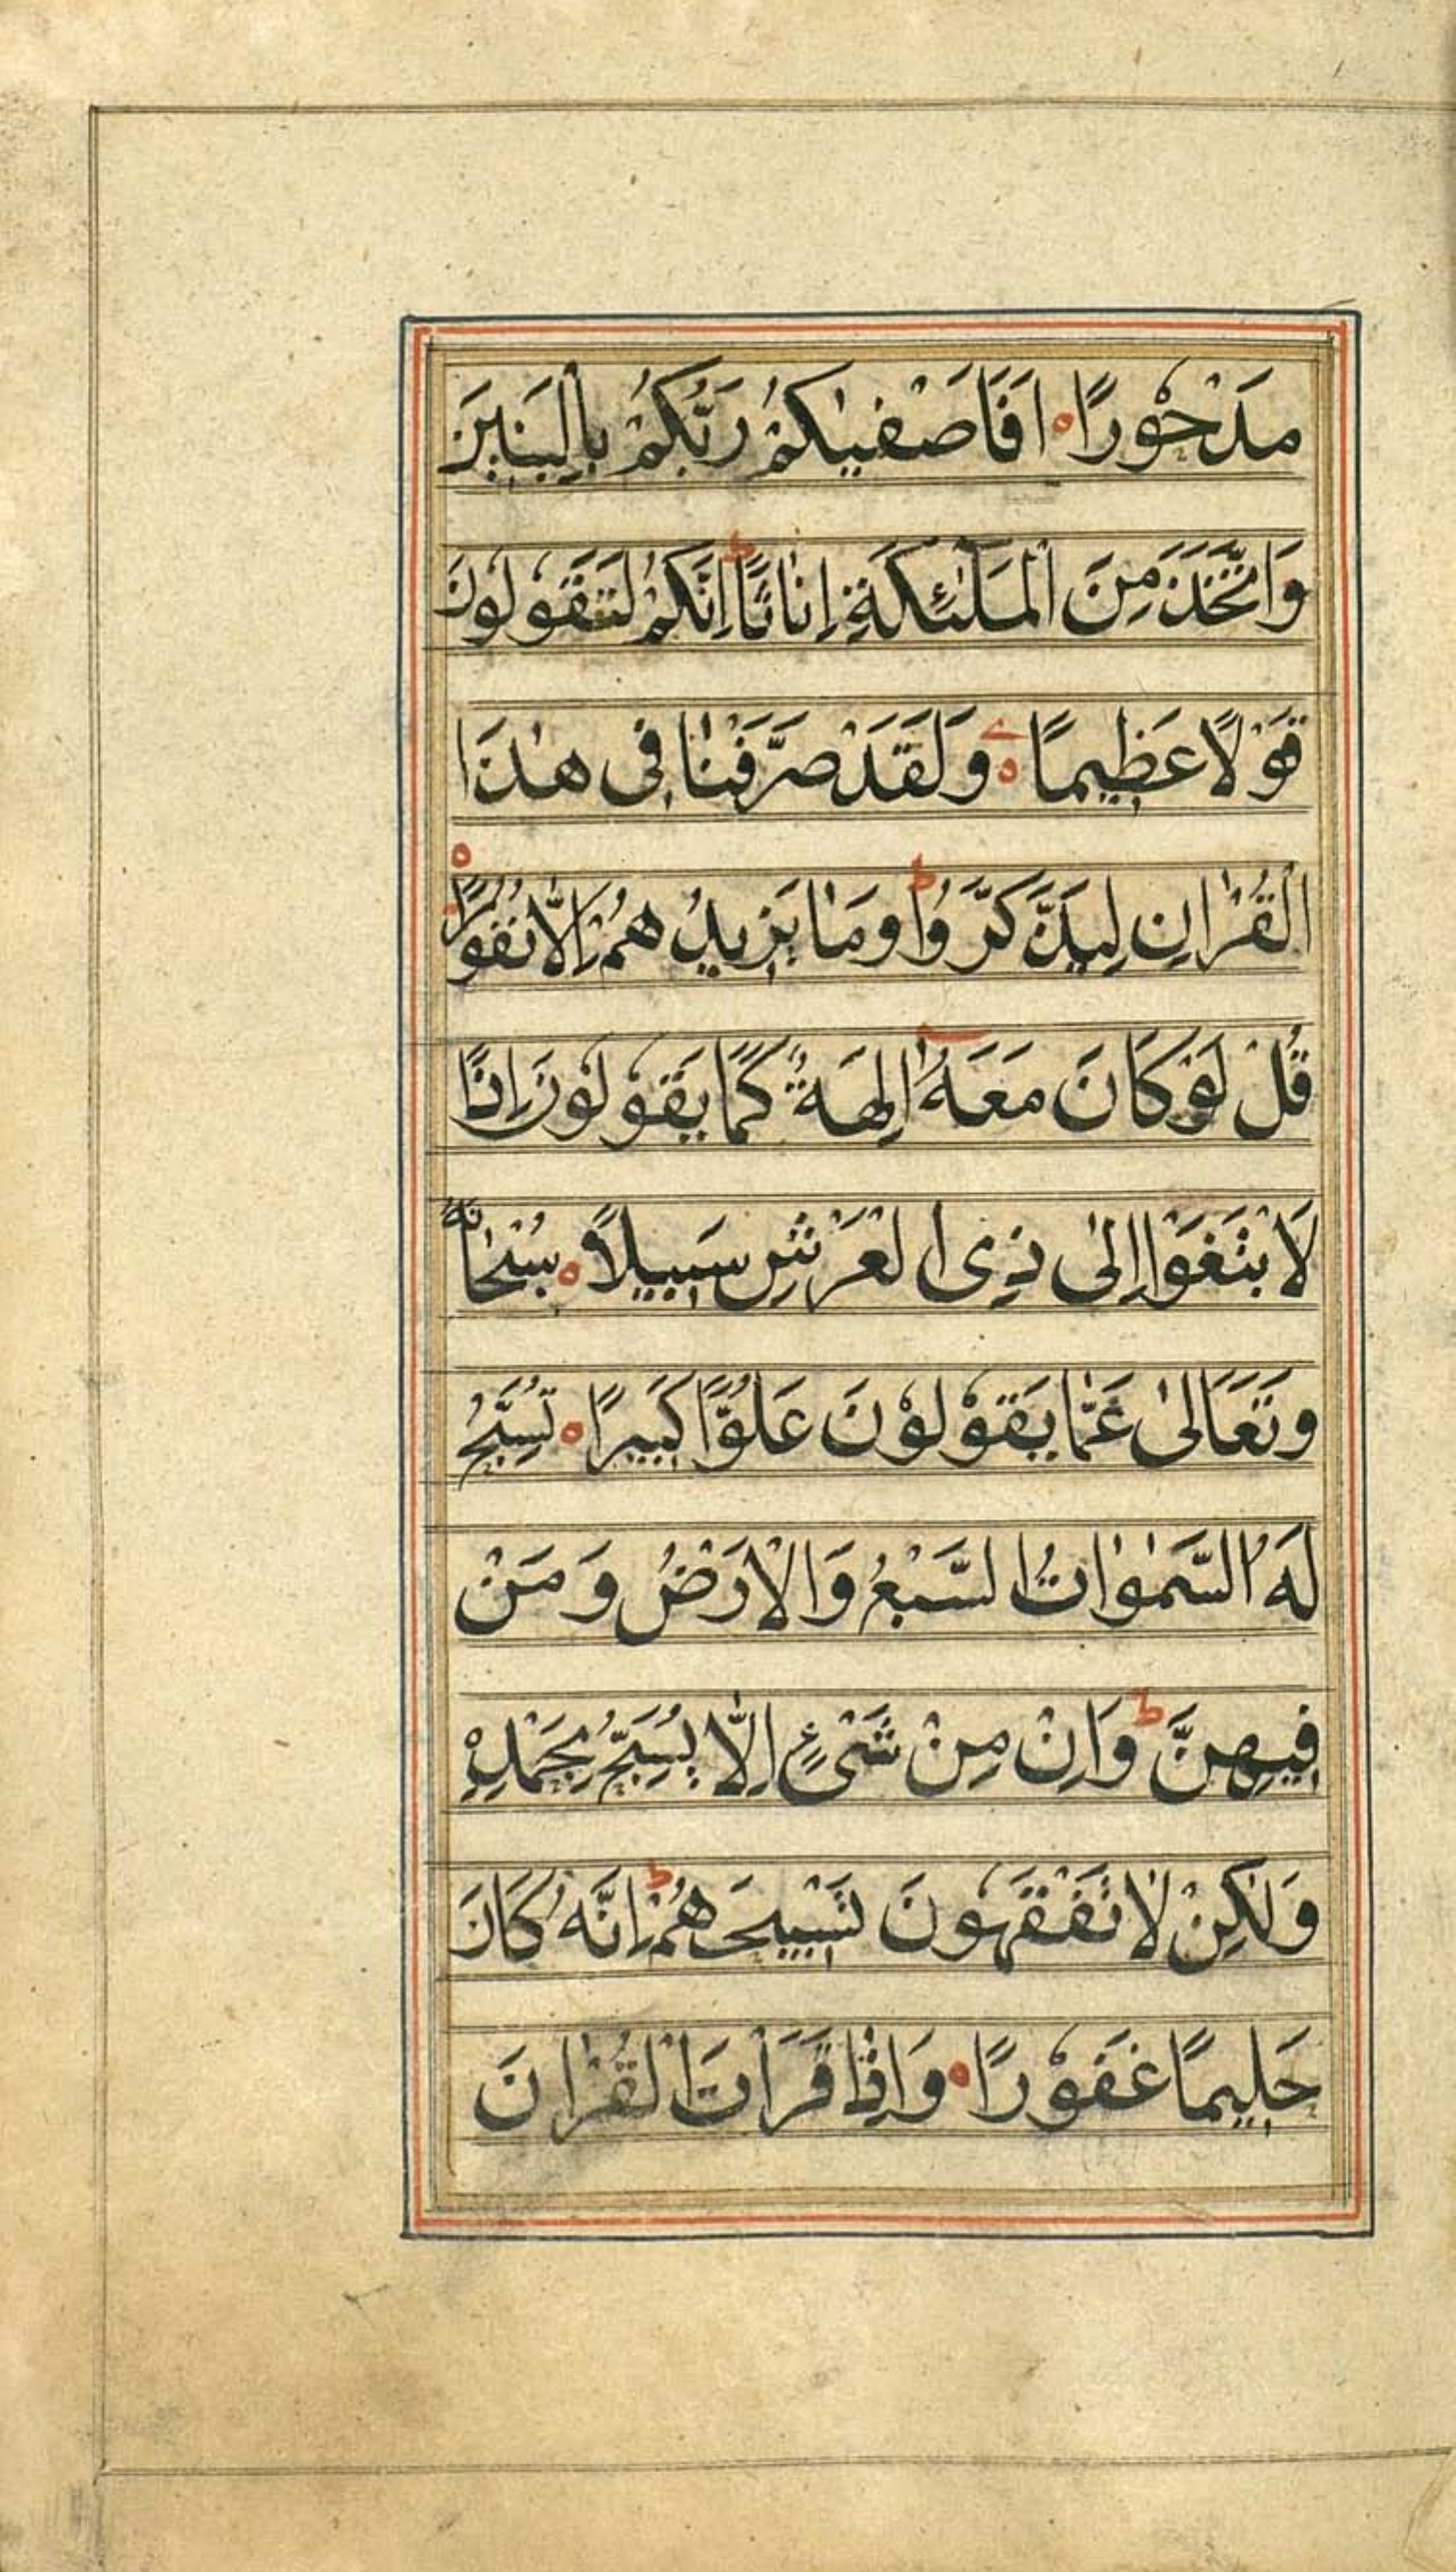 مَدْحُوْرًا ۝ اَفَاَصْفٰىكُمْ رَبُّكُمْ بِالْبَنِيْنَ
وَاتَّخَذَ مِنَ الْمَلٰٓئِكَةِ اِنَاثًا ؕ اِنَّكُمْ لَتَقُوْلُوْنَ
قَوْلًا عَظِيْمًا ۝ وَلَقَدْ صَرَّفْنَا فِى هٰذَا
الْقُرْاٰنِ لِيَذَّكَّرُوْا ؕ وَمَا يَزِيْدُهُمْ اِلَّا نُفُوْرًا ۝
قُلْ لَوْ كَانَ مَعَهٗٓ اٰلِهَةٌ كَمَا يَقُوْلُوْنَ اِذًا
لَابْتَغَوْا اِلٰى ذِى الْعَرْشِ سَبِيْلًا ۝ سُبْحَانَهٗ
وَتَعَالٰى عَمَّا يَقُوْلُوْنَ عُلُوًّا كَبِيْرًا ۝ تُسَبِّحُ
لَهُ السَّمٰوَاتُ السَّبْعُ وَالْاَرْضُ وَمَنْ
فِيْهِنَّ ؕ وَاِنْ مِنْ شَىْءٍ اِلَّا يُسَبِّحُ بِحَمْدِهٖ
وَلٰكِنْ لَا تَفْقَهُوْنَ تَسْبِيْحَهُمْ ؕ اِنَّهٗ كَانَ
حَلِيْمًا غَفُوْرًا ۝ وَاِذَا قَرَاْتَ الْقُرْاٰنَ